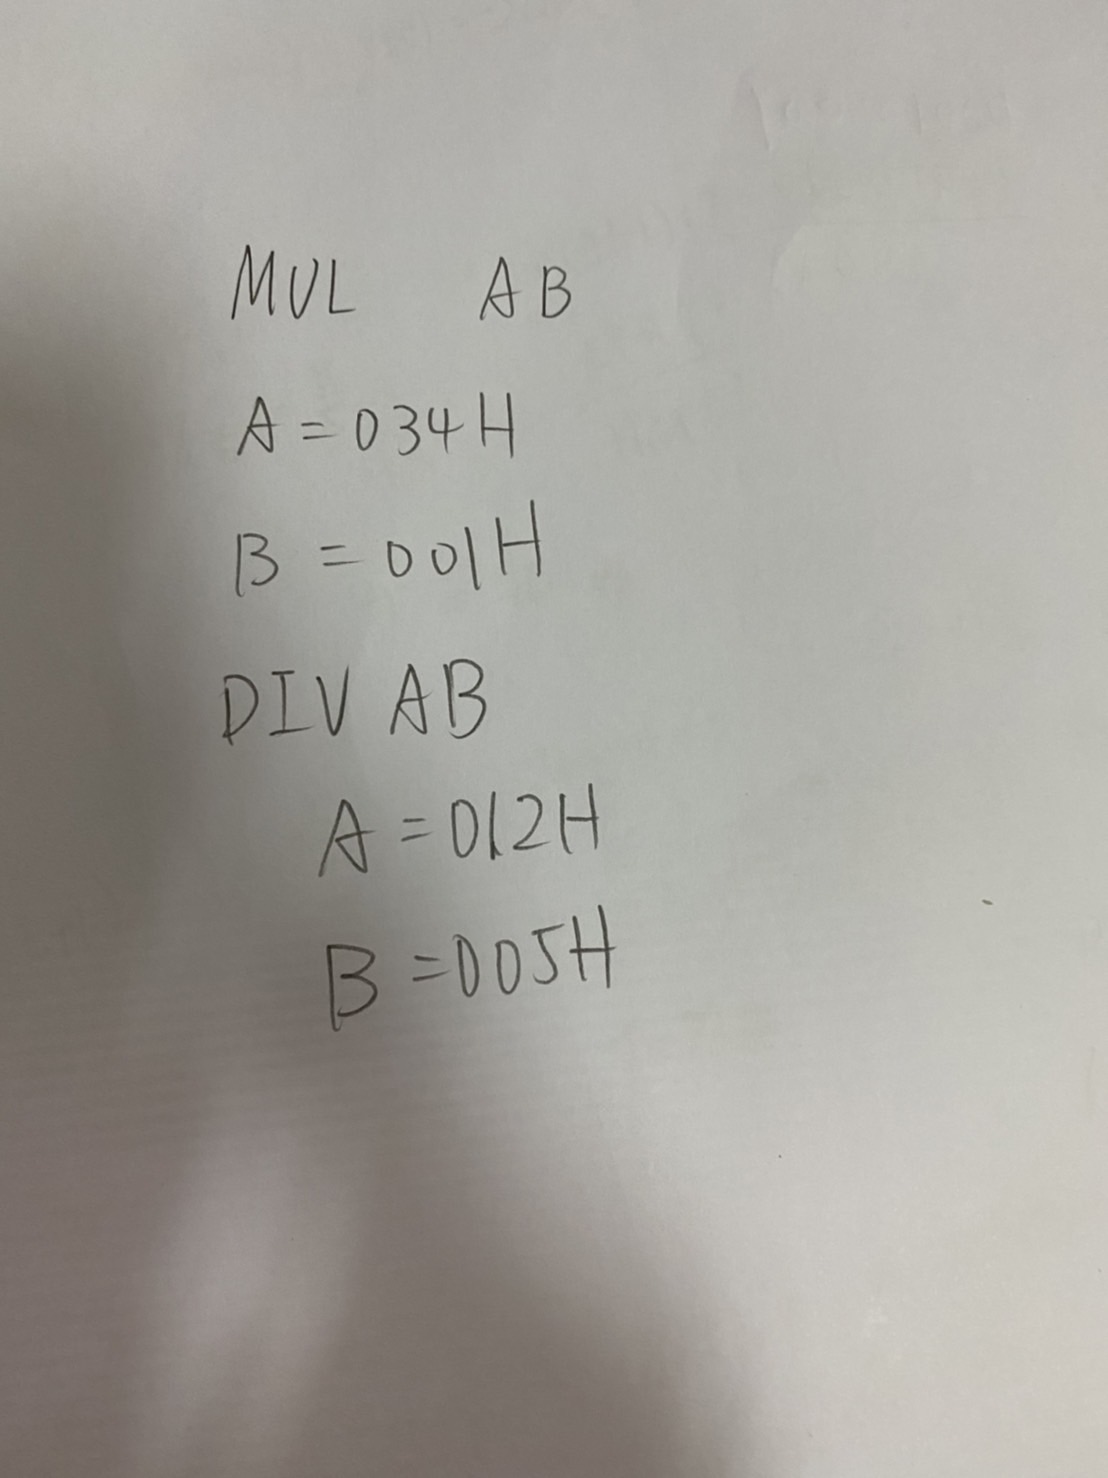 MUL AB
A = 034H
B = 001H
DIV AB
A = 012H
B = 005H